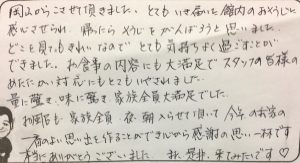 岡山から来させて頂きました。とてもいき届いた館内のおそうじに
感心させられ、帰ったらそうじをがんばろうと思いました。
どこを見てもきれいなので とても気持ちよく過ごすことが
できました。お食事の内容にも大満足でスタッフの皆様の
あたたかい対応にもとてもいやされました。
量に驚き、味に驚き、家族全員大満足でした。
お風呂も、家族全員、夜、朝入らせて頂いて 今年のお家の
一番のよい思い出を作ることができたから感謝の思い一杯です
本当にありがとうございました。また、是非、来てみたいです♡